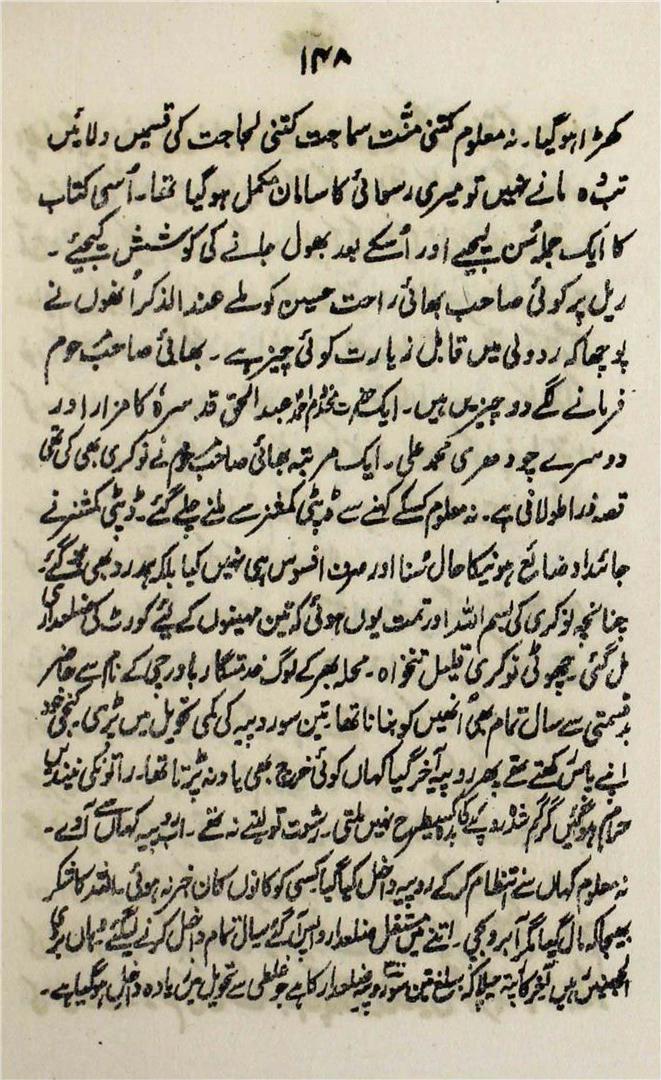 ۱۴۸
کھڑا ہوگیا۔ نہ معلوم کتنی منّت سماجت کتنی لجاجت کی قسمیں دلائیں
تب وہ مانے نہیں تو میری رسوائی کا سامان مکمل ہوگیا تھا۔ اُسی کتاب
کا ایک جملہ سُن لیجیے اور اُسکے بعد بھول جانے کی کوشش کیجیئے۔
ریل پر کوئی صاحب بھائی راحت حسین کو ملے عندالذکر اُنھوں نے
پوچھا کہ ردولی میں قابل زیارت کوئی چیز ہے۔ بھائی صاحب مرحوم
فرمانے لگے دو چیزیں ہیں۔ ایک حضرت مخدوم احمد عبدالحق قدسرہٗ کا مزار اور
دوسرے چودھری محمد علی۔ ایک مرتبہ بھائی صاحب مرحوم نے نوکری بھی کی تھی
قصہ ذرا طولانی ہے۔ نہ معلوم کسکے کہنے سے ڈپٹی کمشنر سے ملنے چلے گئے۔ ڈپٹی کمشنر نے
جائداد ضائع ہونیکا حال سُنا اور صرف افسوس ہی نہیں کیا بلکہ ہمدرد بھی ہو گئے۔
چنانچہ نوکری کی بسم اللہ اور تمت یوں ہوئی کہ تین مہینوں کے لیئے کورٹ کی ضلعداری
مل گئی۔ چھوٹی نوکری قلیل تنخواہ۔ محلہ بھر کے لوگ خدمتگار باورچی کے نام سے حاضر
بدقسمتی سے سال تمام بھی اُنھیں کو بنانا تھا۔ تین سو روپیہ کی کمی تحویل میں پڑی۔ کنجی خود
اپنے پاس رکھتے تھے پھر روپیہ آخر گیا کہاں کوئی خرچ بھی یاد نہ پڑتا تھا۔ راتونکی نیندیں
حرام ہوگئیں گر گم شدہ روپے کی بُو کسیطرح نہیں ملتی۔ رشوت تو لیتے نہ تھے۔ اب روپیہ کہاں سے آوے۔
نہ معلوم کہاں سے انتظام کر کے روپیہ داخل کیا گیا کسی کو کانوں کان خبر نہ ہوئی۔ اللہ کا شکر
بھیجا کہ مال گیا مگر آبرو بچی۔ اتنے میں مستقل ضلعدار واپس آگئے سال تمام داخل کرنے لگے یہاں بڑی
الجھنیں ہیں آخر کو پتہ چلا کہ مبلغ تین سو روپیہ ضلعدار کا ہے جو غلطی سے تحویل میں زیادہ داخل ہوگیا ہے۔